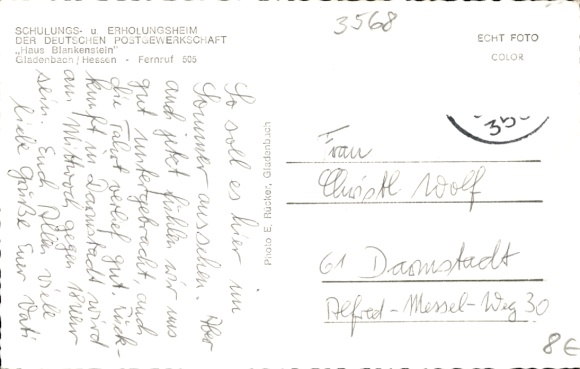 3568
SCHULUNGS- u. ERHOLUNGSHEIM
DER DEUTSCHEN POSTGEWERKSCHAFT
„Haus Blankenstein"
Gladenbach/Hessen - Fernruf 505
ECHT FOTO
COLOR
So soll es hier im
Sommer aussehen. Aber
auch jetzt fühlen wir uns
gut untergebracht, auch
die Fahrt verlief gut. Rück-
kunft in Darmstadt wird
am Mittwoch gegen
sein. Euch Allen viele
liebe Grüße Euer Vati
Photo E. Rücker, Gladenbach
35
Frau
Christl Wolf
61 Darmstadt
Alfred-Messel-Weg 30
8€